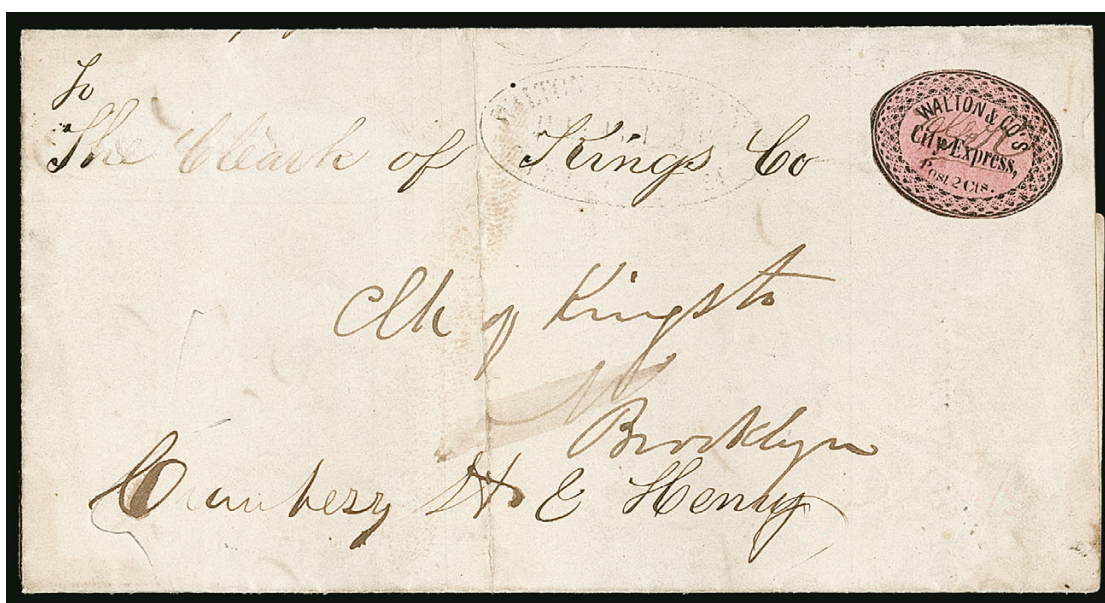 To
The Clerk of Kings Co
WALTON
WALTON & CO'S
City Express,
Post 2 Cts.
Clk of Kings Co
Brooklyn
Cranberry St E Henry